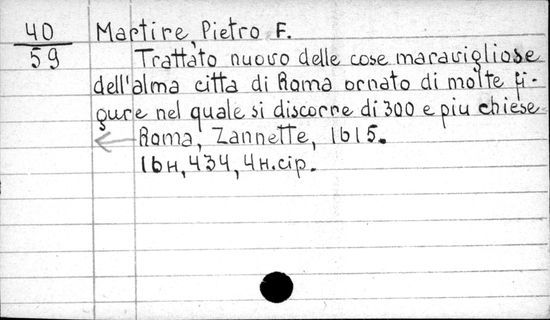 40 Martire, Pietro F.
59 Trattato nuovo delle cose maravigliose
dell'alma citta di Roma ornato di molte fi-
gure nel quale si discorre di 300 e piu chiese
Roma, Zannette, 1615.
16н, 434, 4н.cip.